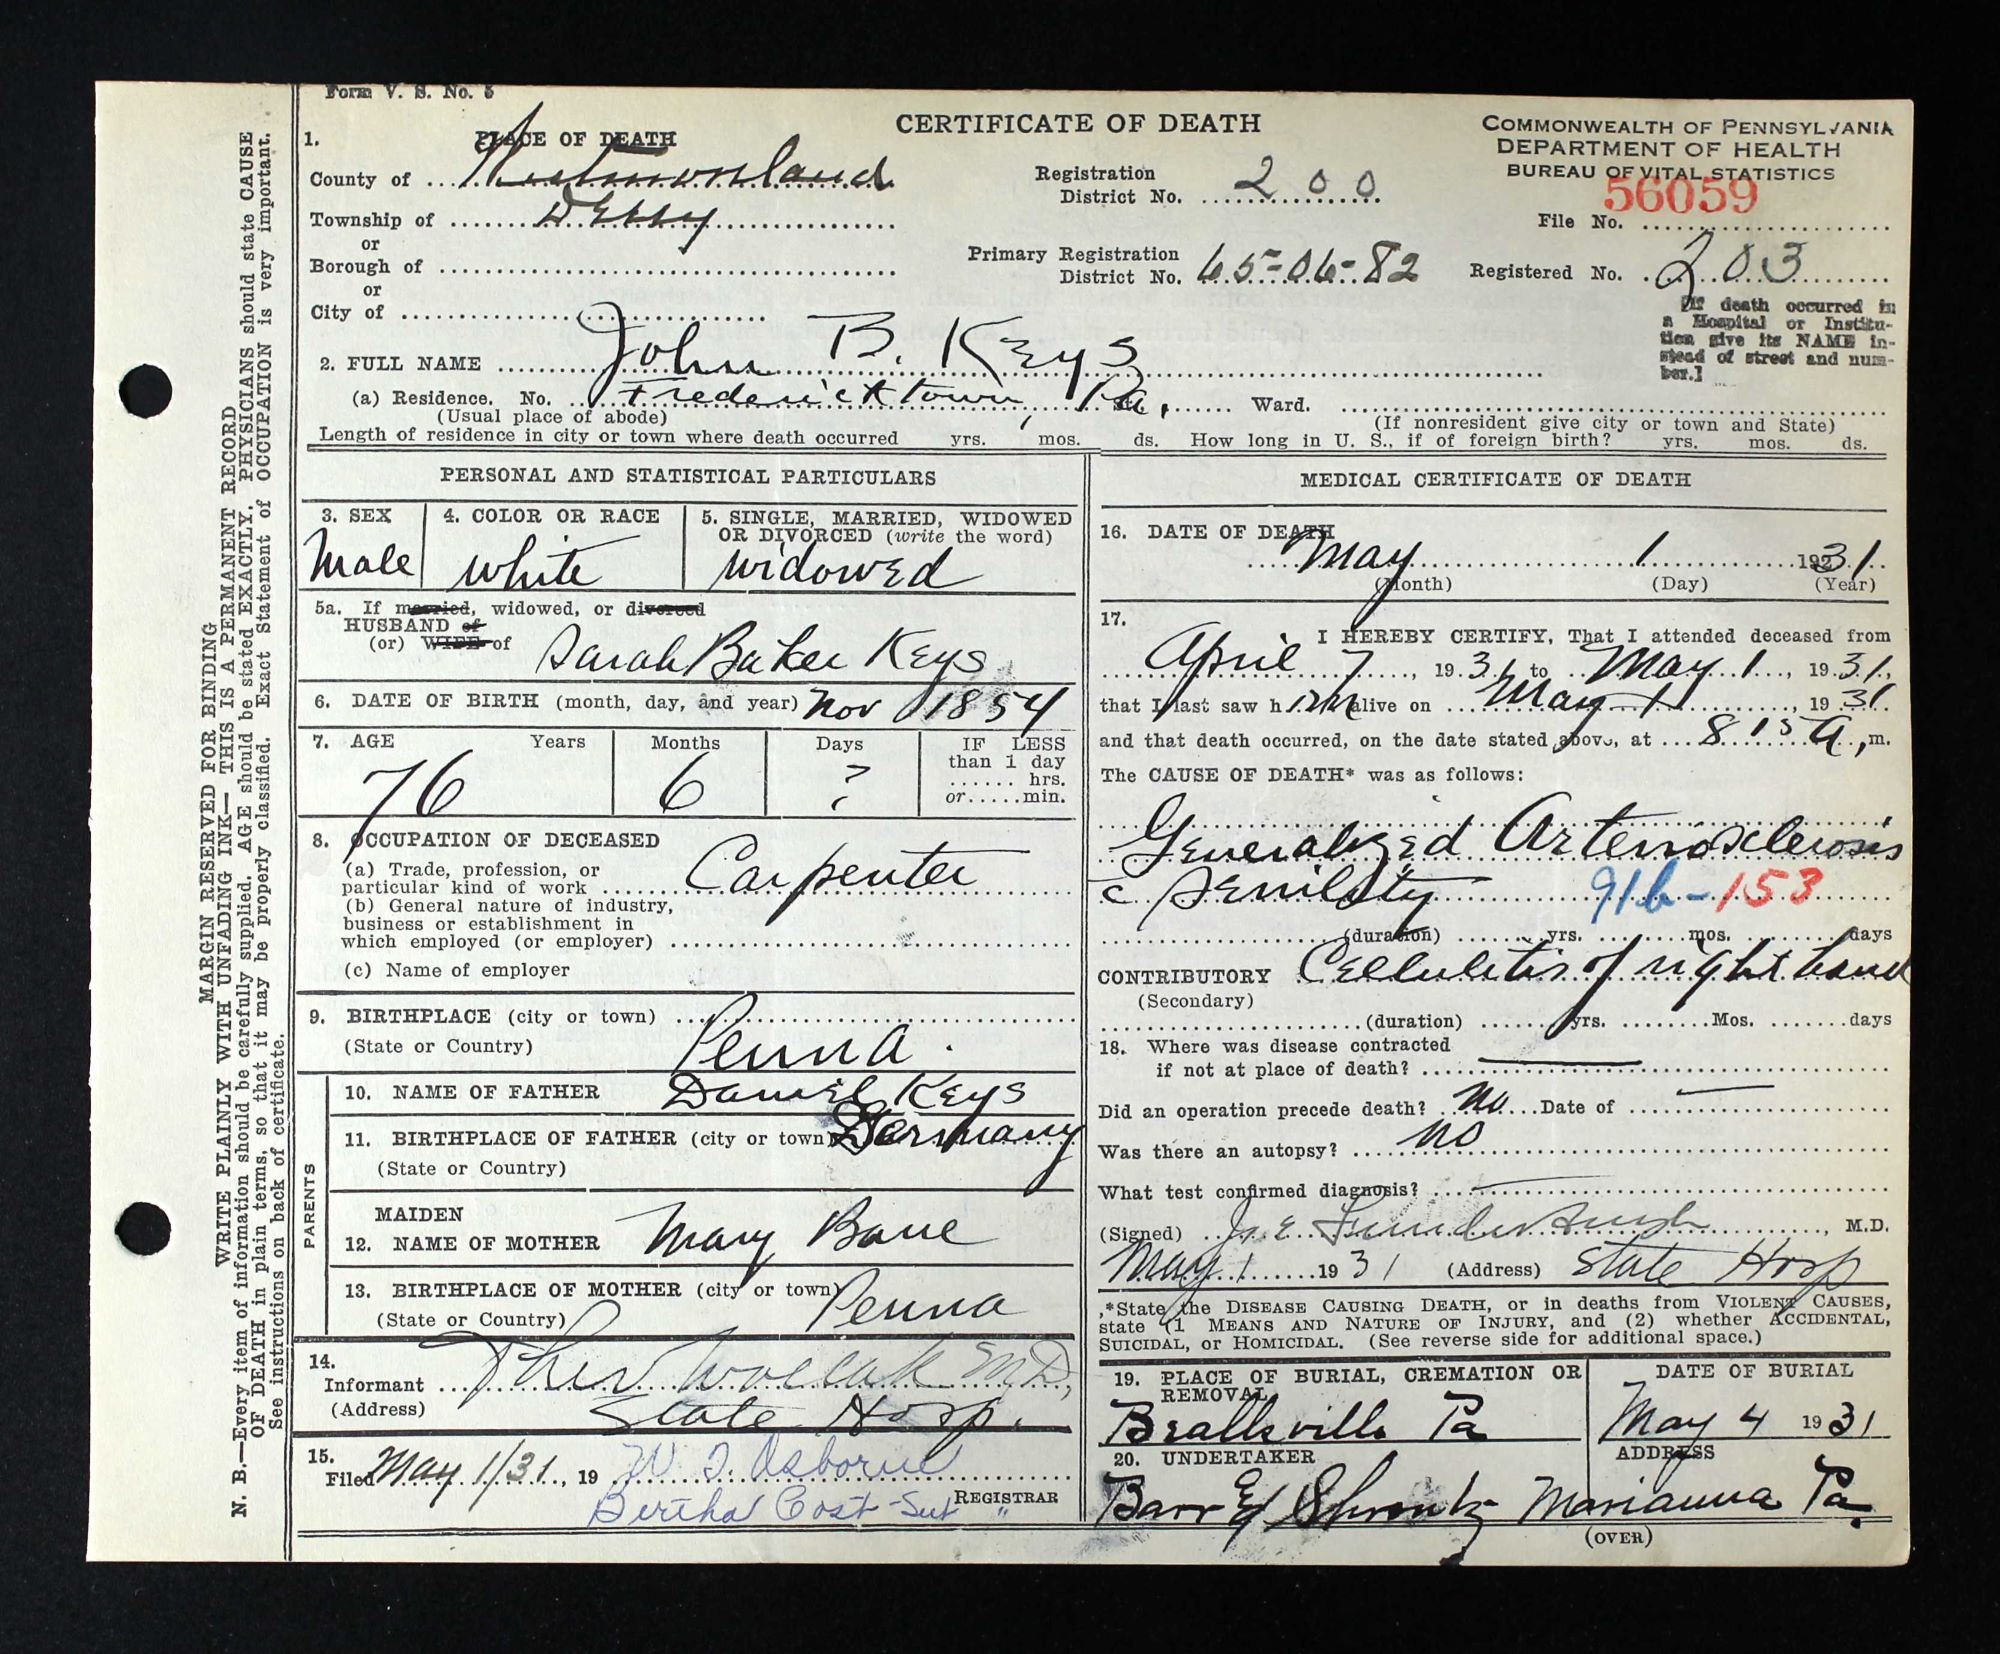 Form V. S. No. 5
CERTIFICATE OF DEATH
COMMONWEALTH OF PENNSYLVANIA
DEPARTMENT OF HEALTH
BUREAU OF VITAL STATISTICS
1. PLACE OF DEATH
County of Westmoreland
Township of Derry
or
Borough of
or
City of
Registration
District No. 200
Primary Registration
District No. 65-06-82
56059
File No.
Registered No. 203
[If death occurred in
a Hospital or Institu-
tion give its NAME in-
stead of street and num-
ber.]
2. FULL NAME John B. Keys
(a) Residence. No. Fredericktown, Pa. St. Ward.
(Usual place of abode) (If nonresident give city or town and State)
Length of residence in city or town where death occurred yrs. mos. ds. How long in U. S., if of foreign birth? yrs. mos. ds.
PERSONAL AND STATISTICAL PARTICULARS
3. SEX
Male
4. COLOR OR RACE
White
5. SINGLE, MARRIED, WIDOWED
OR DIVORCED (write the word)
Widowed
5a. If married, widowed, or divorced
HUSBAND of
(or) WIFE of Sarah Baker Keys
6. DATE OF BIRTH (month, day, and year) Nov 1854
7. AGE Years Months Days IF LESS
than 1 day
hrs.
or min.
76 6 ?
8. OCCUPATION OF DECEASED
(a) Trade, profession, or
particular kind of work Carpenter
(b) General nature of industry,
business or establishment in
which employed (or employer)
(c) Name of employer
9. BIRTHPLACE (city or town)
(State or Country) Penna.
PARENTS
10. NAME OF FATHER Daniel Keys
11. BIRTHPLACE OF FATHER (city or town) Germany
(State or Country)
MAIDEN
12. NAME OF MOTHER Mary Bane
13. BIRTHPLACE OF MOTHER (city or town)
(State or Country) Penna
14.
Informant M.D.,
(Address) State Hosp.
15.
Filed May 1/31, 19 W. J. Osborne
Bertha Cost - Sub "
REGISTRAR
MEDICAL CERTIFICATE OF DEATH
16. DATE OF DEATH
May 1 1931
(Month) (Day) (Year)
17.
I HEREBY CERTIFY, That I attended deceased from
April 7, 1931 to May 1, 1931,
that I last saw him alive on May 1 1931
and that death occurred, on the date stated above, at 8 15 A, m.
The CAUSE OF DEATH* was as follows:
Generalized Arteriosclerosis
c Senility 91b-153
(duration) yrs. mos. days
CONTRIBUTORY Cellulitis of right hand
(Secondary)
(duration) yrs. Mos. days
18. Where was disease contracted
if not at place of death?
Did an operation precede death? No Date of
Was there an autopsy? No
What test confirmed diagnosis?
(Signed) M.D.
May 1 1931 (Address) State Hosp
*State the DISEASE CAUSING DEATH, or in deaths from VIOLENT CAUSES,
state (1 MEANS AND NATURE OF INJURY, and (2) whether ACCIDENTAL,
SUICIDAL, or HOMICIDAL. (See reverse side for additional space.)
19. PLACE OF BURIAL, CREMATION OR
REMOVAL
Beallsville Pa
DATE OF BURIAL
May 4 1931
20. UNDERTAKER
ADDRESS
Marianna Pa.
(OVER)
MARGIN RESERVED FOR BINDING
WRITE PLAINLY WITH UNFADING INK— THIS IS A PERMANENT RECORD
N. B.—Every item of information should be carefully supplied. AGE should be stated EXACTLY. PHYSICIANS should state CAUSE
OF DEATH in plain terms, so that it may be properly classified. Exact Statement of OCCUPATION is very important.
See instructions on back of certificate.